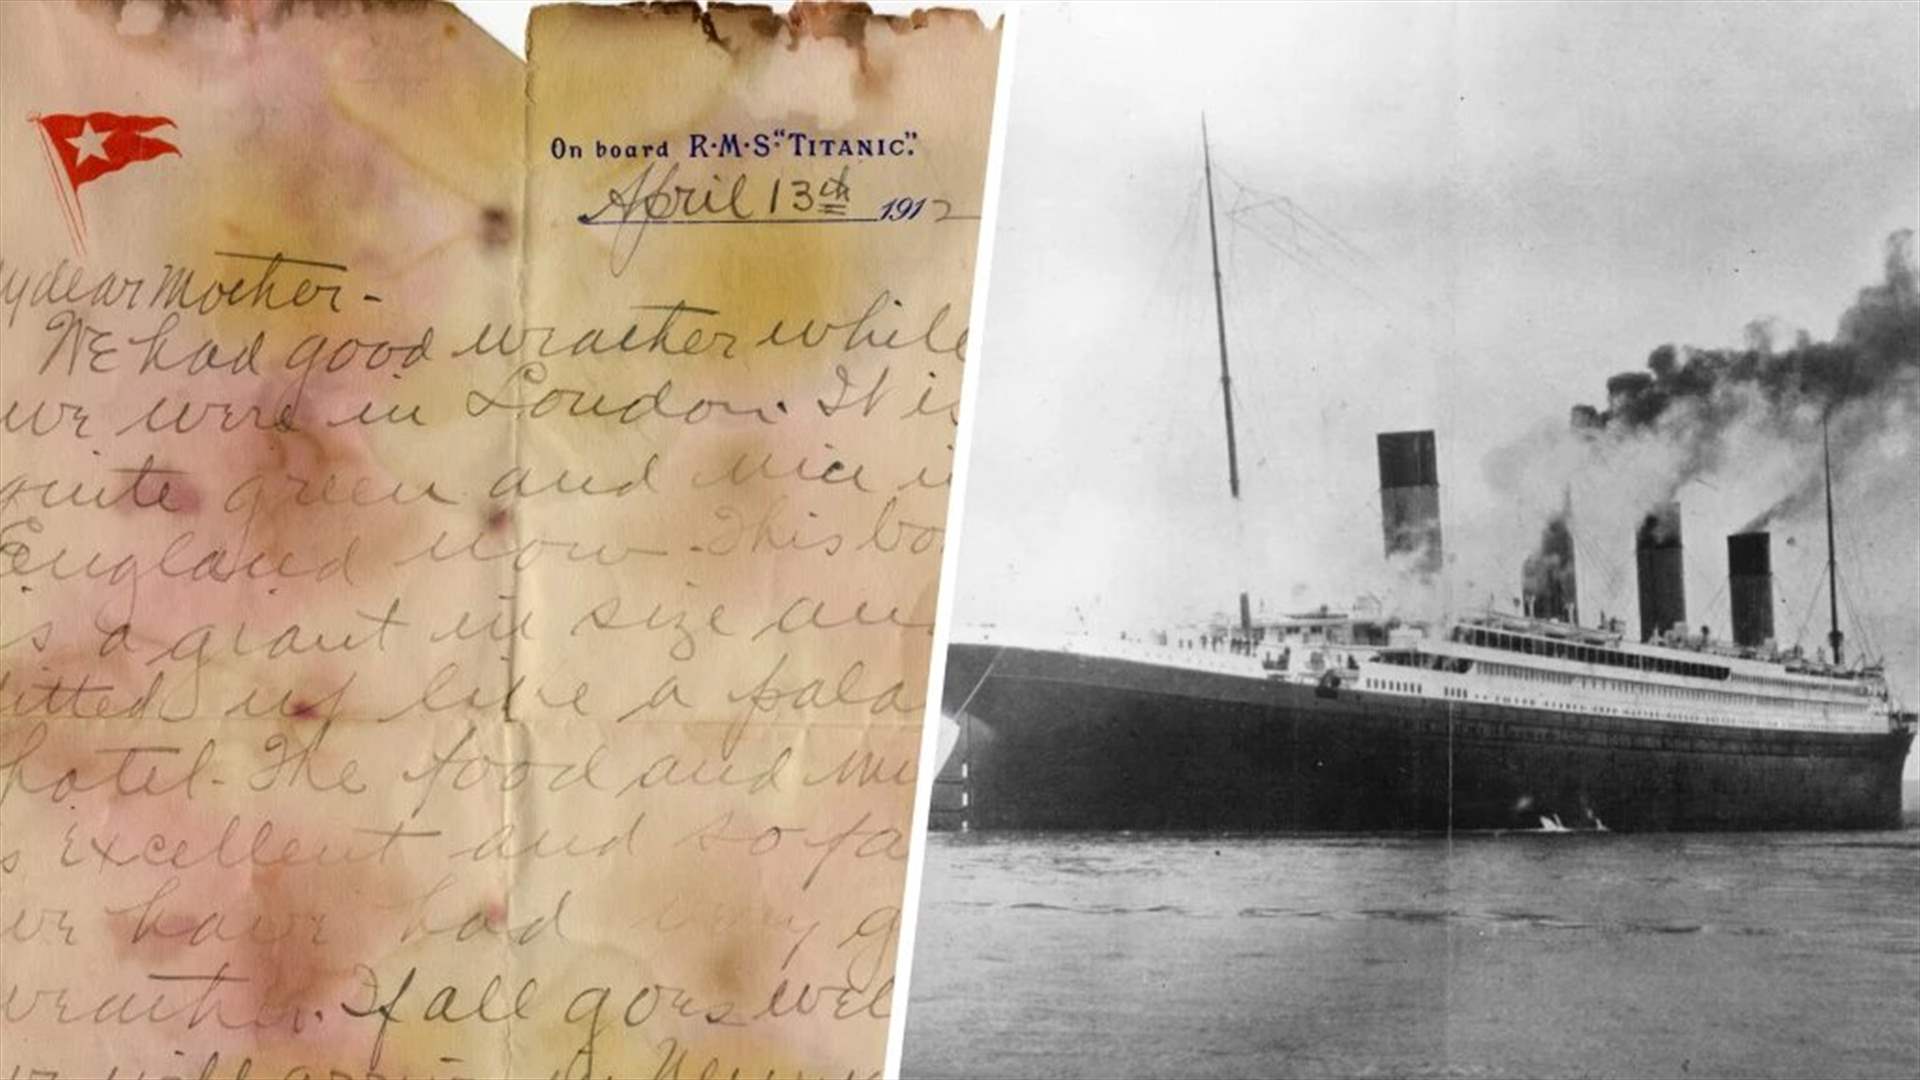 On board R·M·S·"TITANIC".
April 13th 1912
y dear Mother-
We had good weather while
we were in London. It is
quite green and nice i
England now. This bo
is a giant in size an
fitted up like a pala
hotel. The food and mu
s excellent and so fa
we have had very g
weather. If all goes wel
we will arrive in New